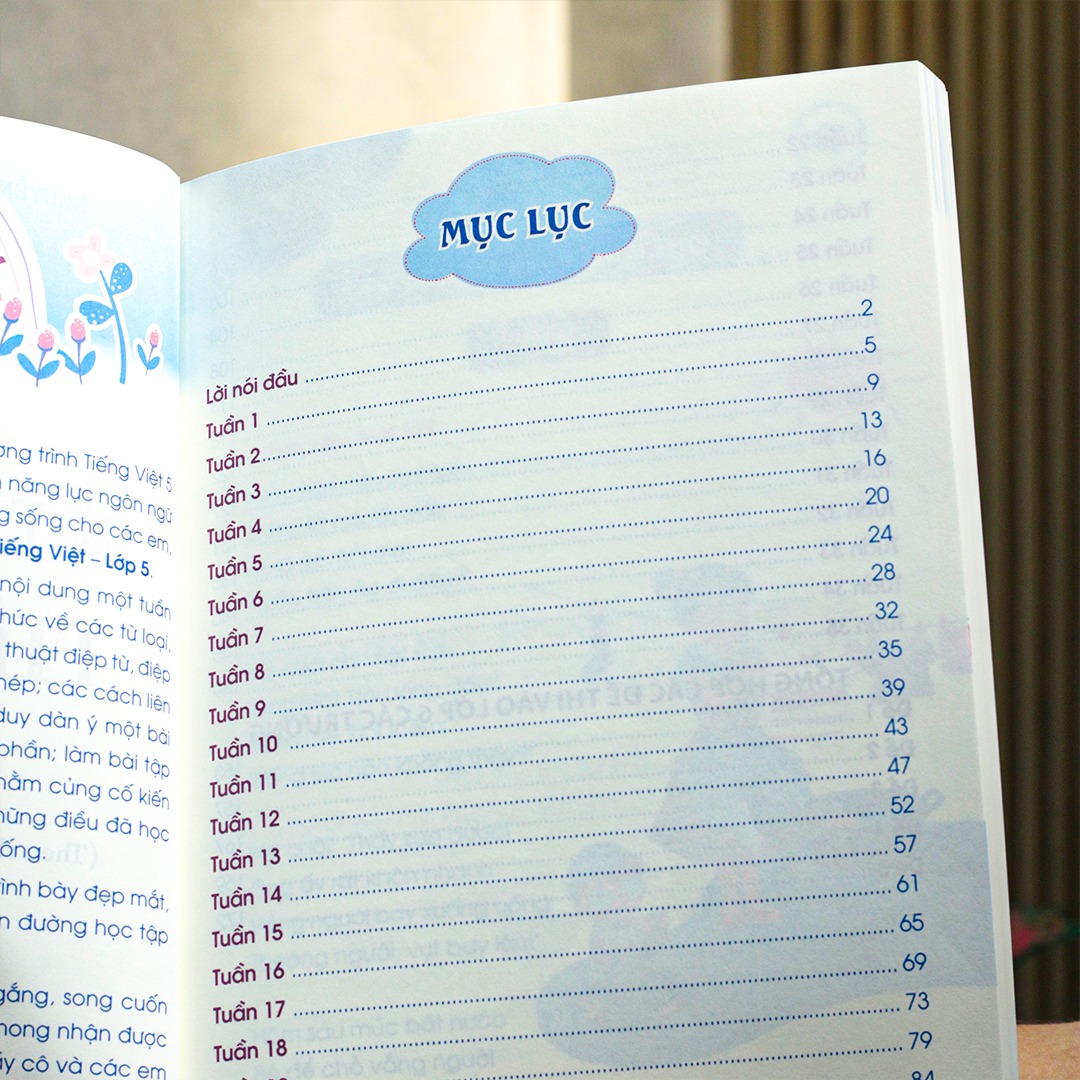 ơng trình Tiếng Việt 5
năng lực ngôn ngữ
sống cho các em,
iếng Việt – Lớp 5.
nội dung một tuần
hức về các từ loại,
thuật điệp từ, điệp
hép; các cách liên
duy dàn ý một bài
phần; làm bài tập
hằm củng cố kiến
hững điều đã học
ống.
rình bày đẹp mắt,
n đường học tập
gắng, song cuốn
mong nhận được
ầy cô và các em
MỤC LỤC
Lời nói đầu 2
Tuần 1 5
Tuần 2 9
Tuần 3 13
Tuần 4 16
Tuần 5 20
Tuần 6 24
Tuần 7 28
Tuần 8 32
Tuần 9 35
Tuần 10 39
Tuần 11 43
Tuần 12 47
Tuần 13 52
Tuần 14 57
Tuần 15 61
Tuần 16 65
Tuần 17 69
Tuần 18 73
79
84